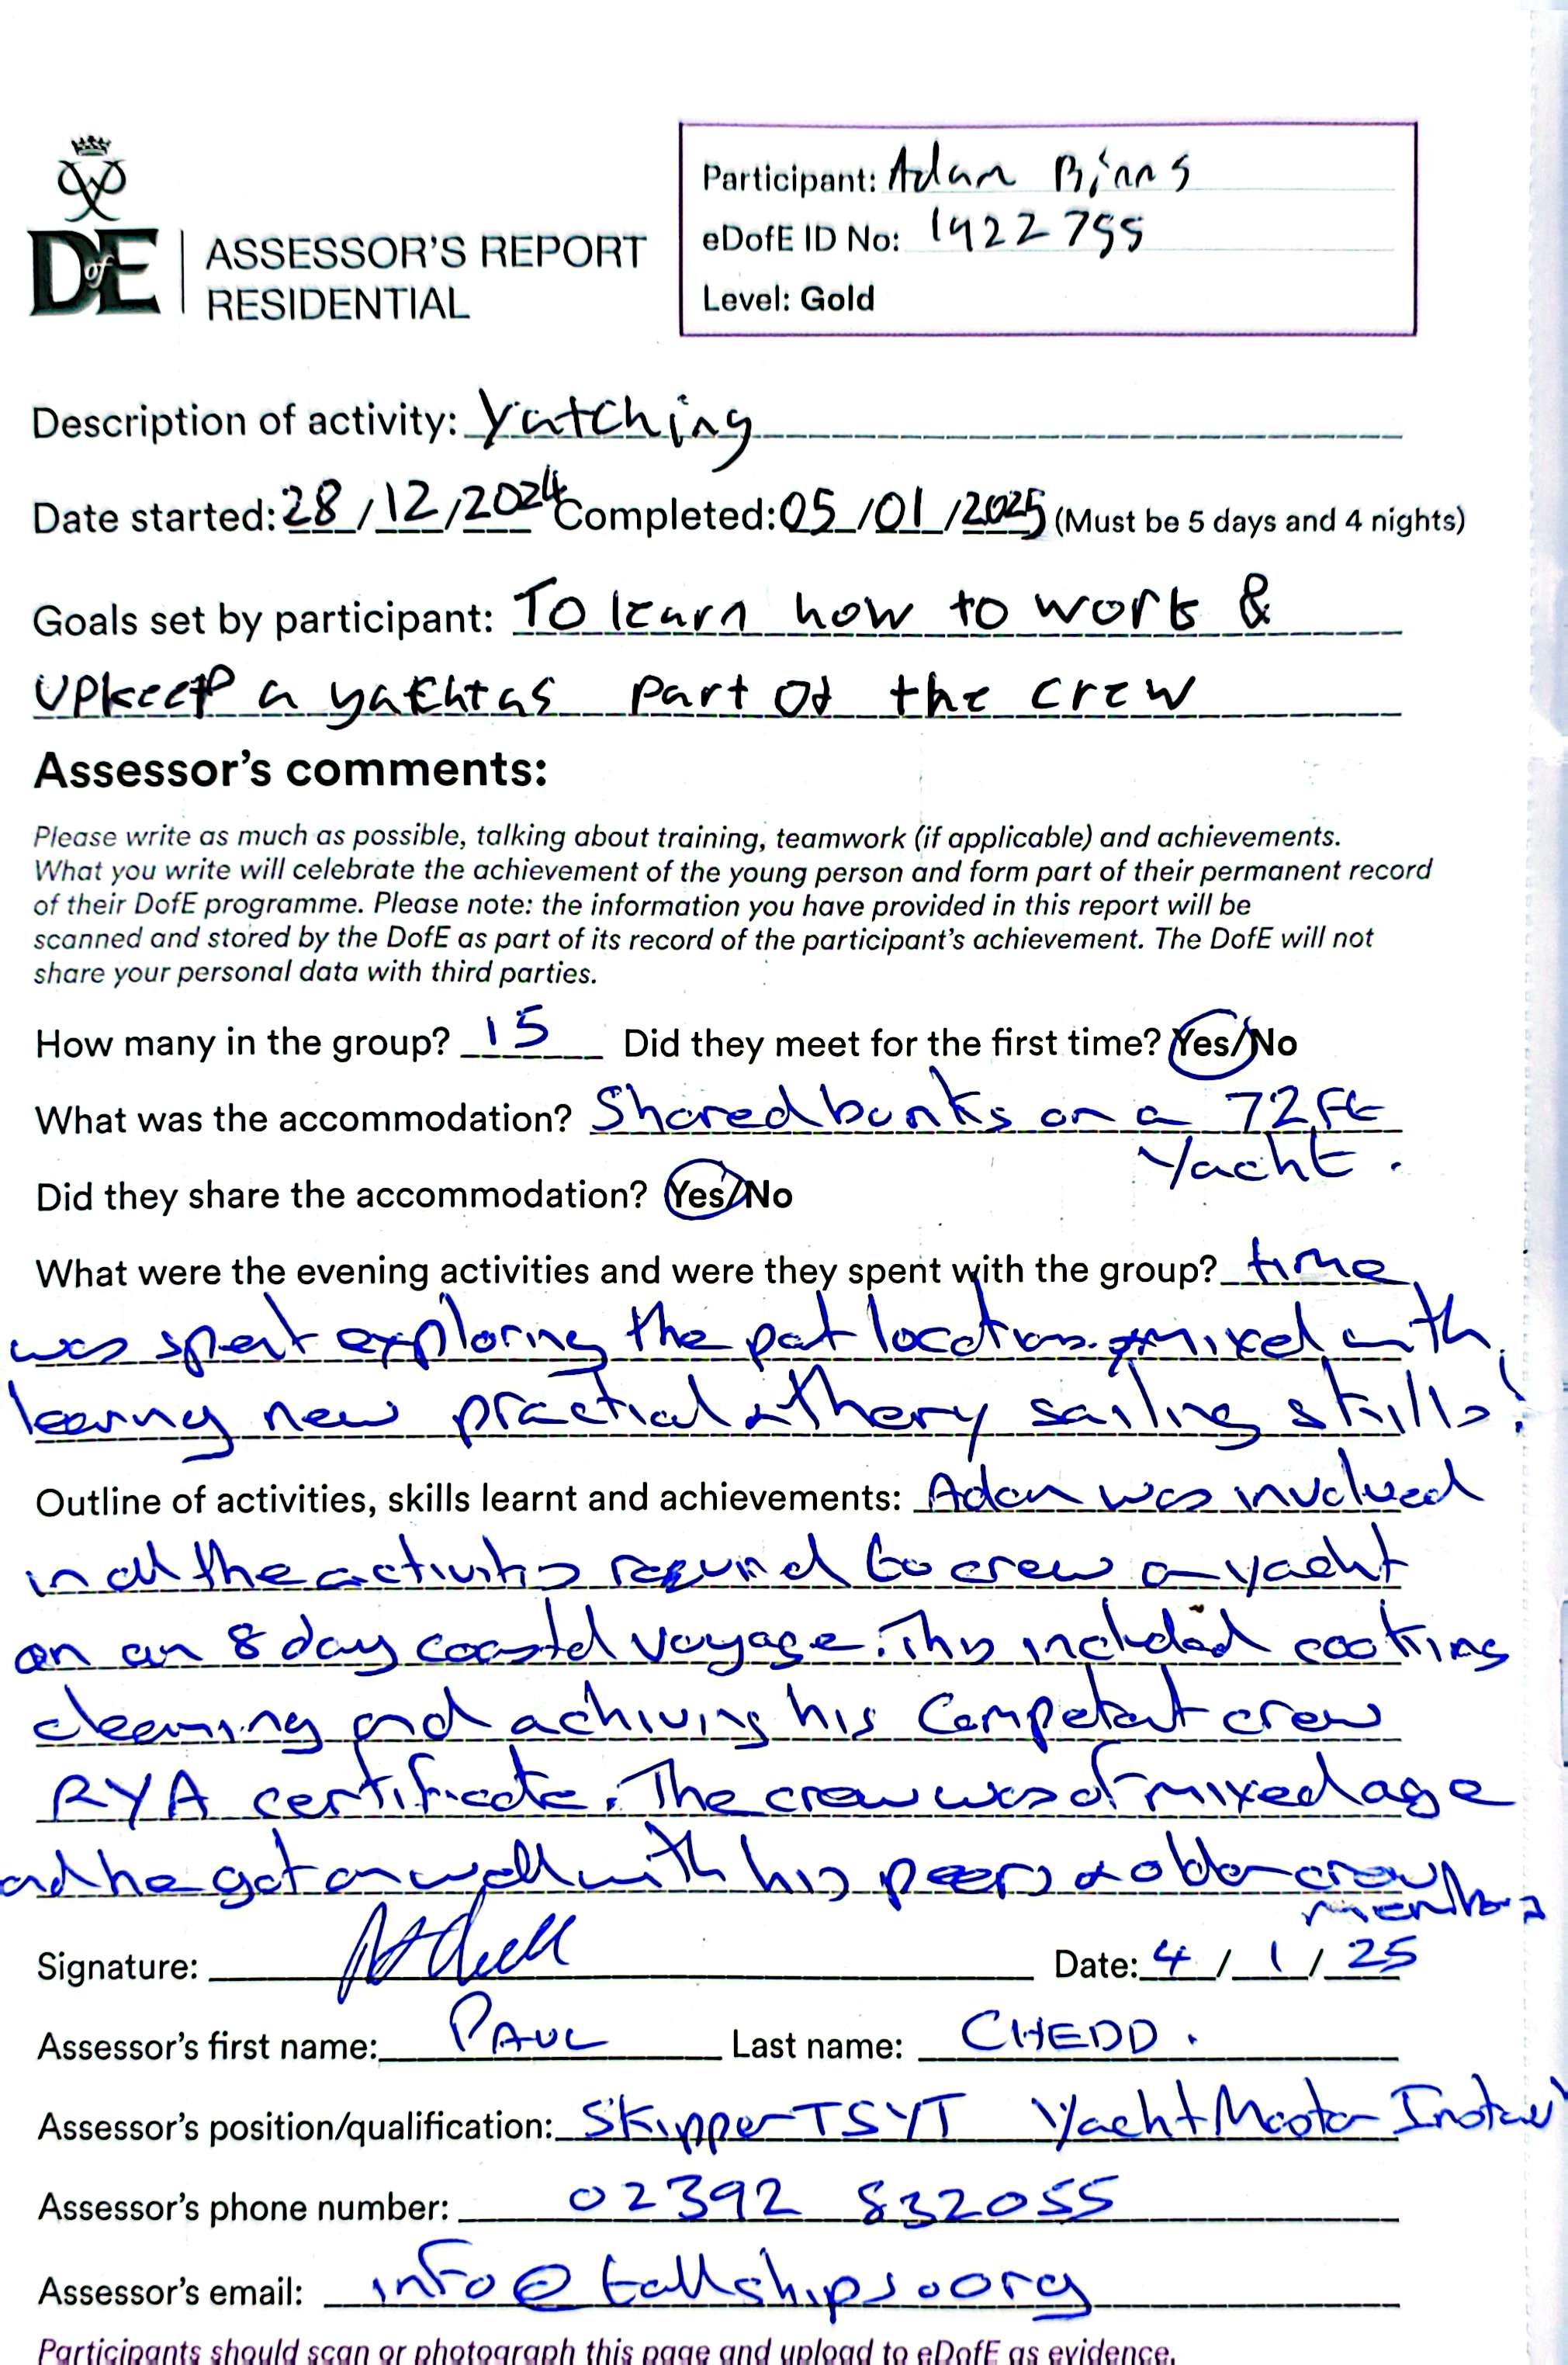 DofE
ASSESSOR'S REPORT
RESIDENTIAL
Participant: Adam Binns
eDofE ID No: 1922755
Level: Gold
Description of activity: Yatching
Date started: 28/12/2024 Completed: 05/01/2025 (Must be 5 days and 4 nights)
Goals set by participant: To learn how to work &
upkeep a yacht as part of the crew
Assessor's comments:
Please write as much as possible, talking about training, teamwork (if applicable) and achievements.
What you write will celebrate the achievement of the young person and form part of their permanent record
of their DofE programme. Please note: the information you have provided in this report will be
scanned and stored by the DofE as part of its record of the participant's achievement. The DofE will not
share your personal data with third parties.
How many in the group? 15 Did they meet for the first time? Yes/No
What was the accommodation? Shared bunks on a 72ft
Yacht.
Did they share the accommodation? Yes/No
What were the evening activities and were they spent with the group? time
was spent exploring the port locations mixed with
learning new practical & theory sailing skills!
Outline of activities, skills learnt and achievements: Adam was involved
in all the activities required to crew a yacht
on an 8 day coastal voyage. This included cooking
cleaning and achiving his Competent crew
RYA certificate. The crew was of mixed age
and he got on well with his peers & older crew
members
Signature: Date: 4/1/25
Assessor's first name: PAUL Last name: CHEDD.
Assessor's position/qualification: Skipper TSYT YachtMaster
Assessor's phone number: 02392 832055
Assessor's email: info@tallships.org
Participants should scan or photograph this page and upload to eDofE as evidence.